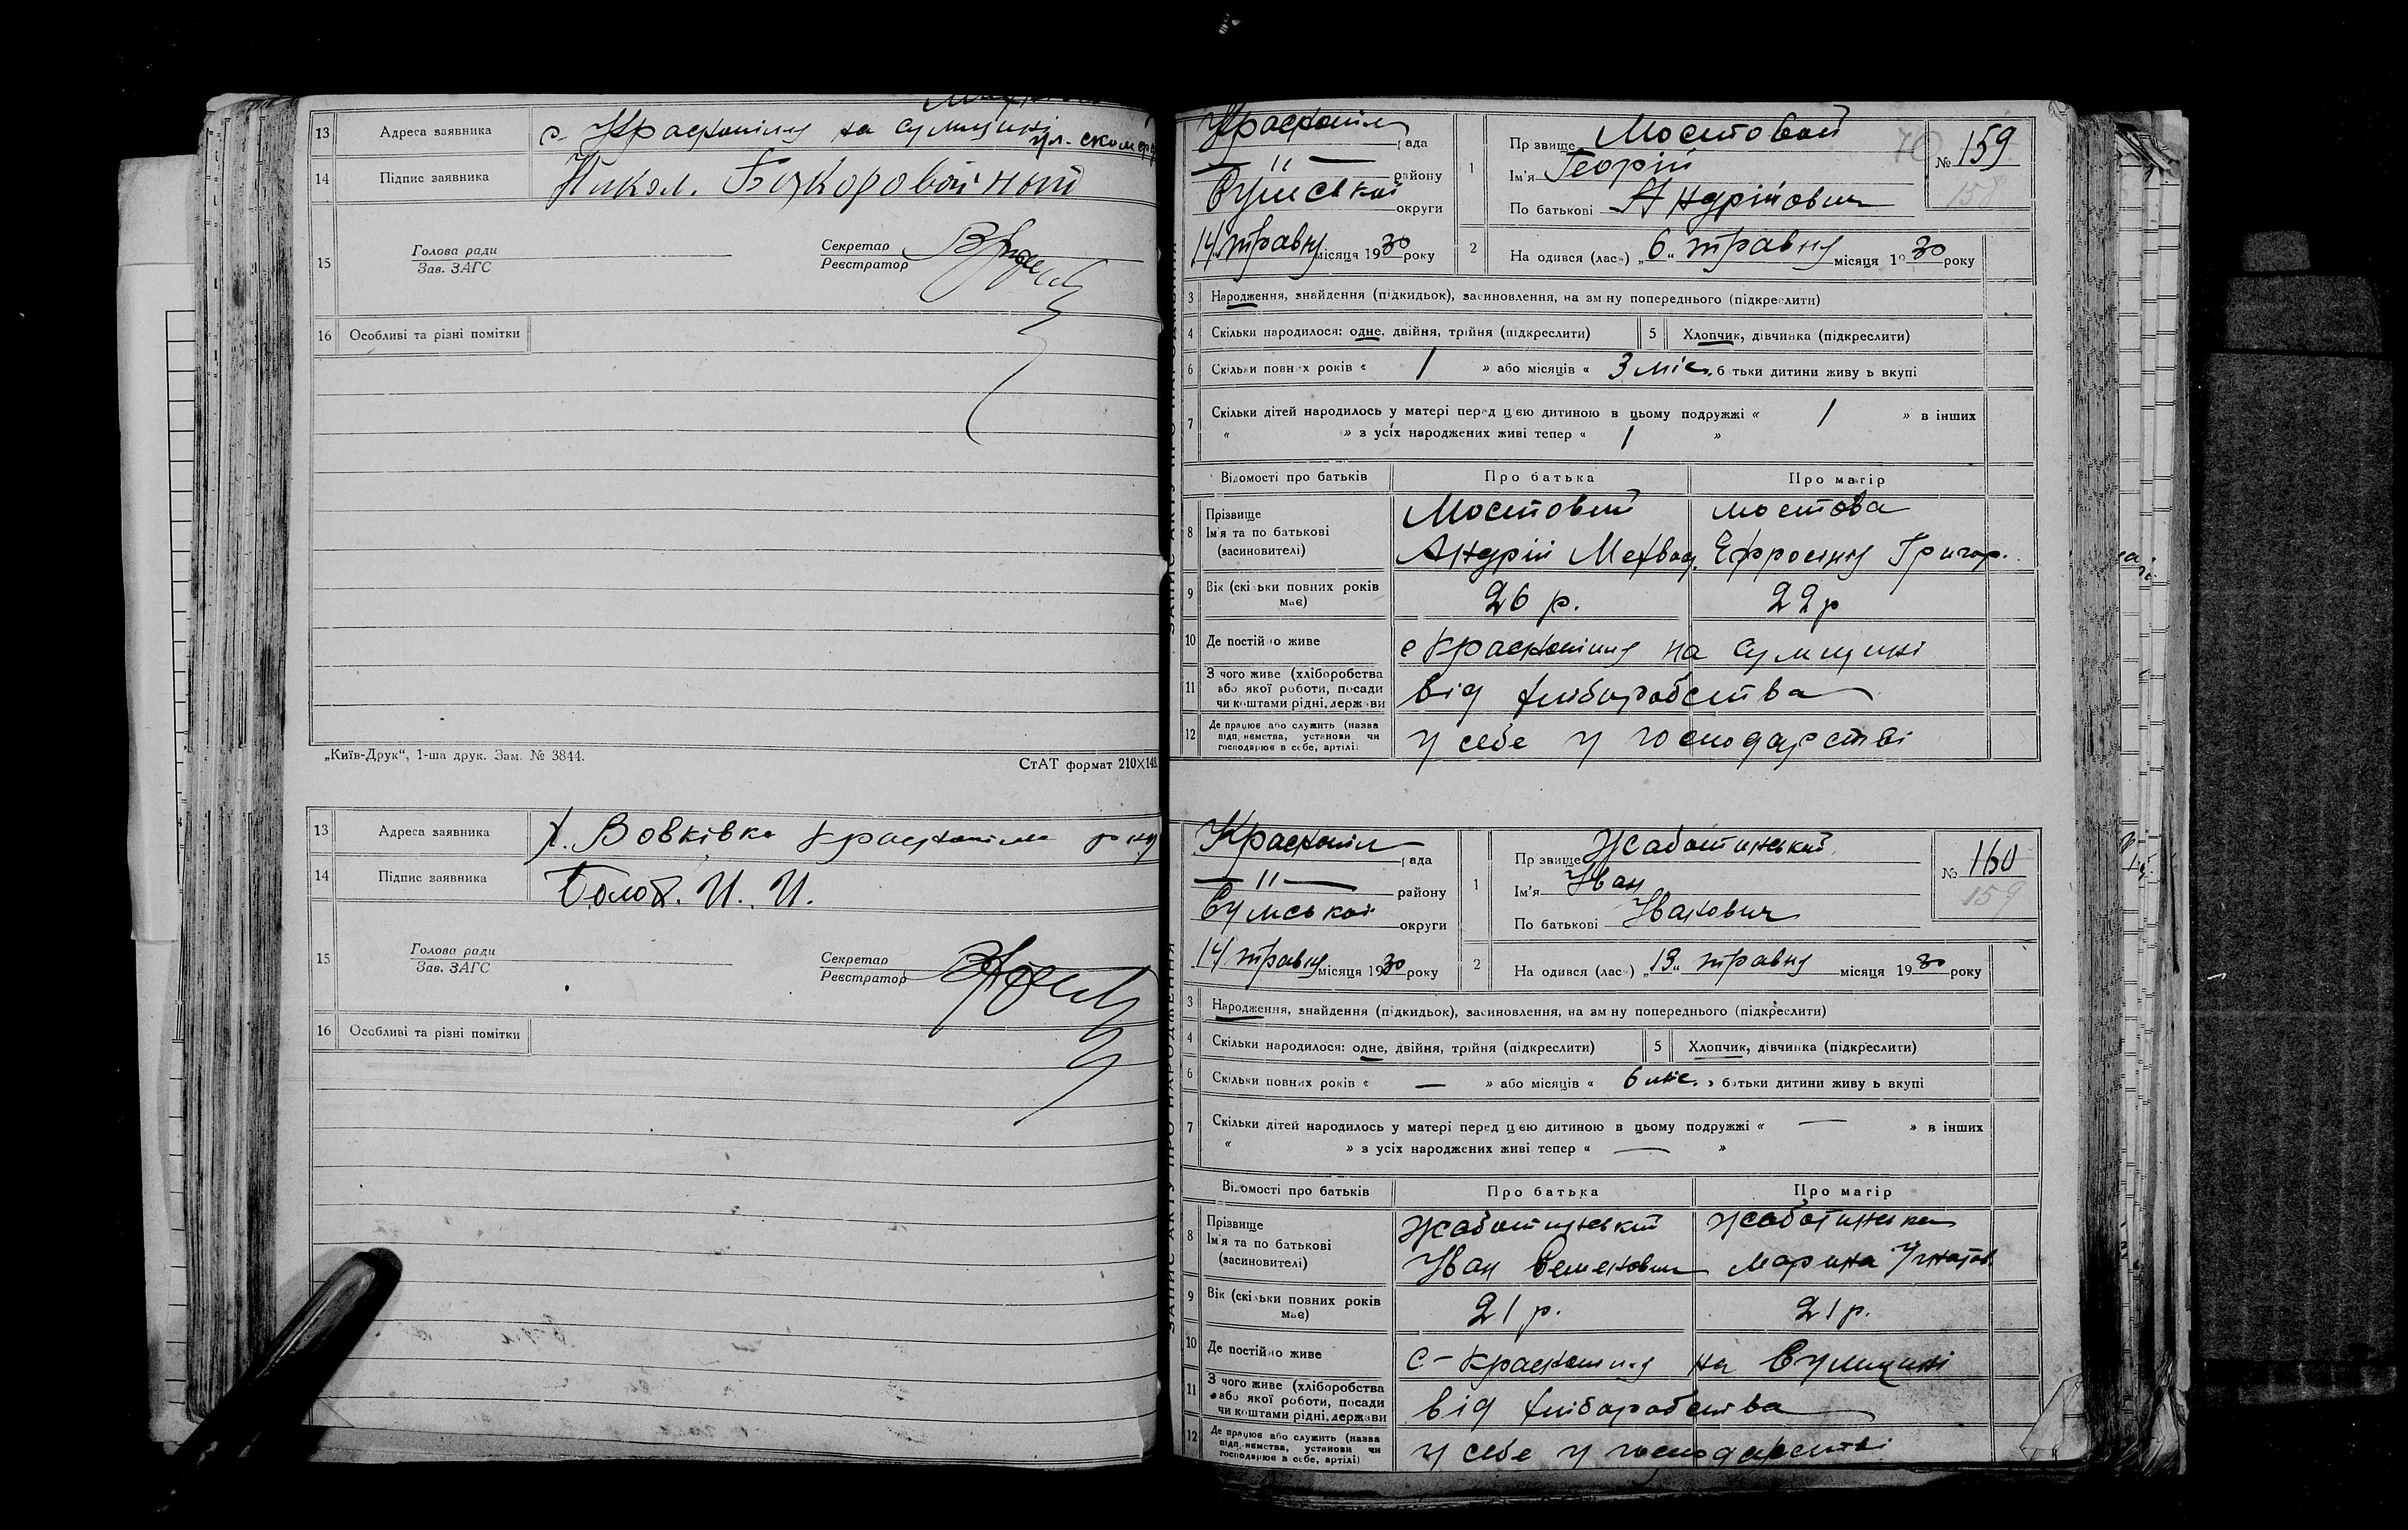 13 Адреса заявника с. Краснопілля на Сумщині
14 Підпис заявника Никол.
15 Голова ради
Зав. ЗАГС
Секретар
Реєстратор
16 Особливі та різні помітки
„Київ-Друк“, 1-ша друк. Зам. № 3844.
СтАТ формат 210×148.
13 Адреса заявника х. Вовківка Краснопіль р-ну
14 Підпис заявника И. И.
15 Голова ради
Зав. ЗАГС
Секретар
Реєстратор
16 Особливі та різні помітки
Краснопіл рада
— " — району
Сумської округи
14 травня місяця 1930 року
1 Прізвище Мостовой
Ім'я Георгій
По батькові Андрійович
№ 159
158
70
2 Народився (лась) „6“ травня місяця 1930 року
3 Народження, знайдення (підкидьок), засиновлення, на зміну попереднього (підкреслити)
4 Скільки народилося: одне, двійня, трійня (підкреслити)
5 Хлопчик, дівчинка (підкреслити)
6 Скільки повних років « 1 » або місяців « 3 міс. батьки дитини живуть вкупі
7 Скільки дітей народилось у матері перед цією дитиною в цьому подружжі « 1 » в інших
« » з усіх народжених живі тепер « 1 »
Відомості про батьків Про батька Про матір
8 Прізвище
Ім'я та по батькові
(засиновителі)
Мостовий Мостова
Андрій Ефросиня Григор.
9 Вік (скільки повних років має) 26 р. 22 р
10 Де постійно живе с Краснопілля на Сумщині
11 З чого живе (хліборобства
або якої роботи, посади
чи коштами рідні, держави
від хліборобства
12 Де працює або служить (назва
підприємства, установи чи
господарює в себе, артілі)
у себе у господарстві
Краснопіл рада
— " — району
Сумської округи
14 травня місяця 1930 року
1 Прізвище Жаботинський
Ім'я Іван
По батькові Іванович
№ 160
159
2 Народився (лась) „13“ травня місяця 1930 року
3 Народження, знайдення (підкидьок), засиновлення, на зміну попереднього (підкреслити)
4 Скільки народилося: одне, двійня, трійня (підкреслити)
5 Хлопчик, дівчинка (підкреслити)
6 Скільки повних років « — » або місяців « 6 міс. » батьки дитини живуть вкупі
7 Скільки дітей народилось у матері перед цією дитиною в цьому подружжі « — » в інших
« » з усіх народжених живі тепер « — »
Відомості про батьків Про батька Про матір
8 Прізвище
Ім'я та по батькові
(засиновителі)
Жаботинський Жаботинська
Іван Семенович Марина Ігнатов.
9 Вік (скільки повних років має) 21 р. 21 р.
10 Де постійно живе с – Краснопілля на Сумщині
11 З чого живе (хліборобства
або якої роботи, посади
чи коштами рідні, держави
від хліборобства
12 Де працює або служить (назва
підприємства, установи чи
господарює в себе, артілі)
у себе у господарстві